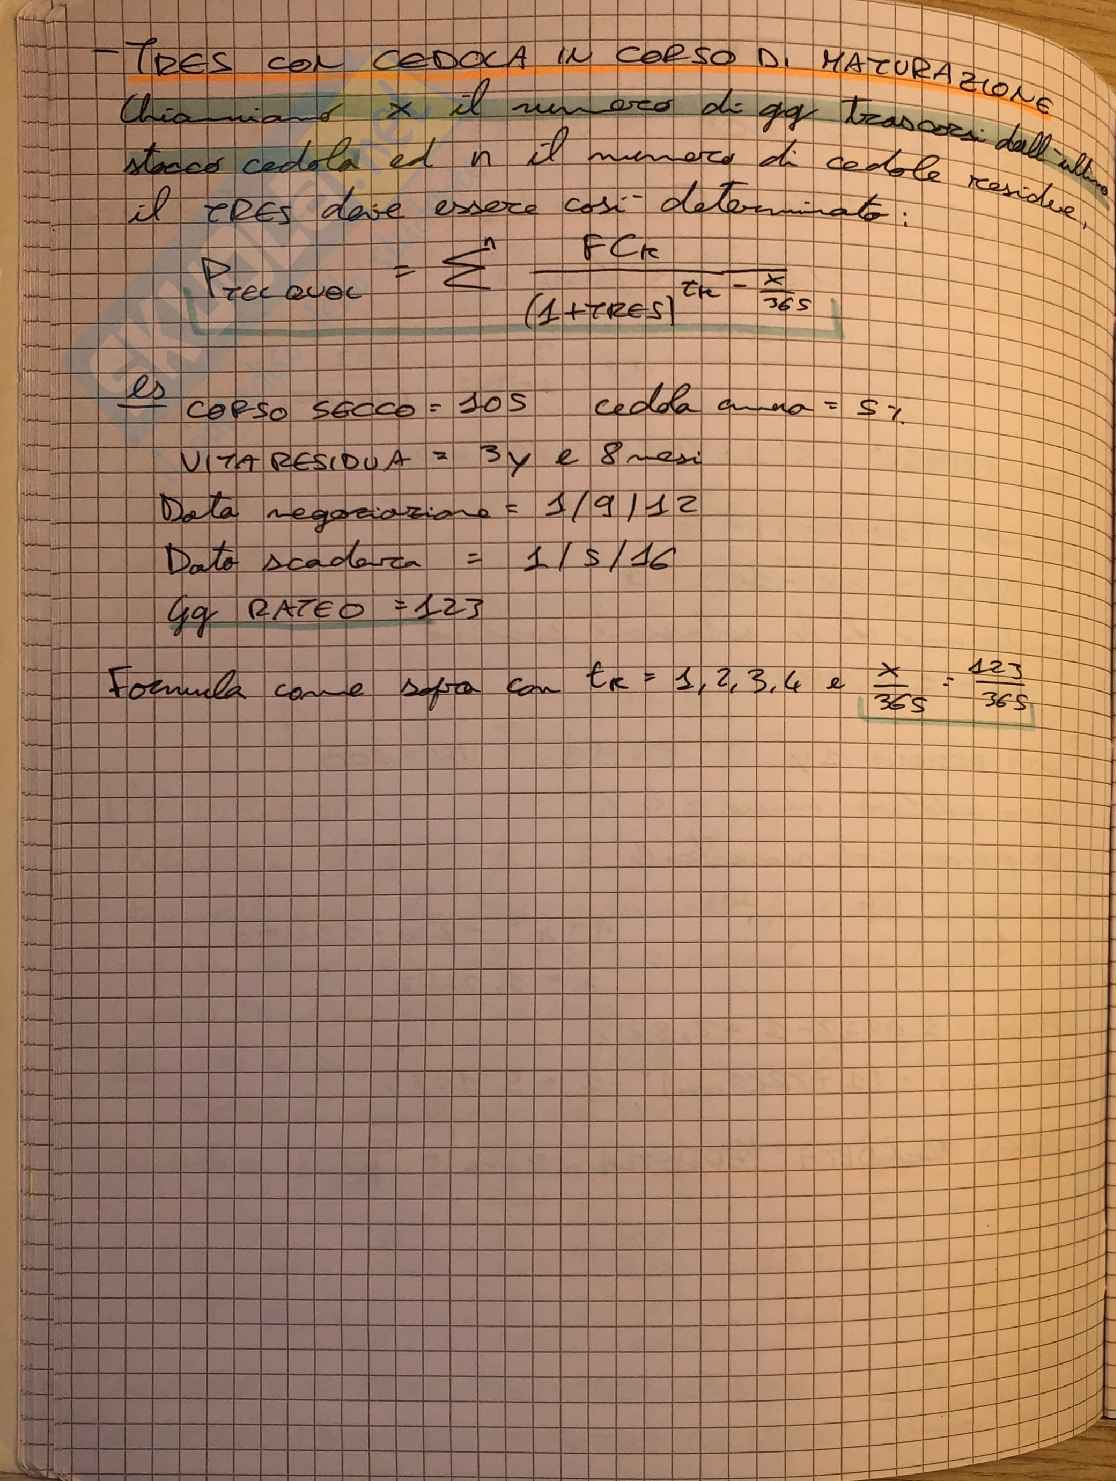 - TRES CON CEDOLA IN CORSO DI MATURAZIONE
Chiamiamo x il numero di gg trascorsi dall'ultimo
stacco cedola ed n il numero di cedole residue,
il TRES deve essere così determinato:
P tel quel = Σ^n FCk / (1+TRES)^(tk - x/365)
es CORSO SECCO = 105 cedola annua = 5%
VITA RESIDUA = 3y e 8 mesi
Data negoziazione = 1/9/12
Data scadenza = 1/5/16
Gg RATEO = 123
Formula come sopra con tk = 1,2,3,4 e x/365 = 123/365